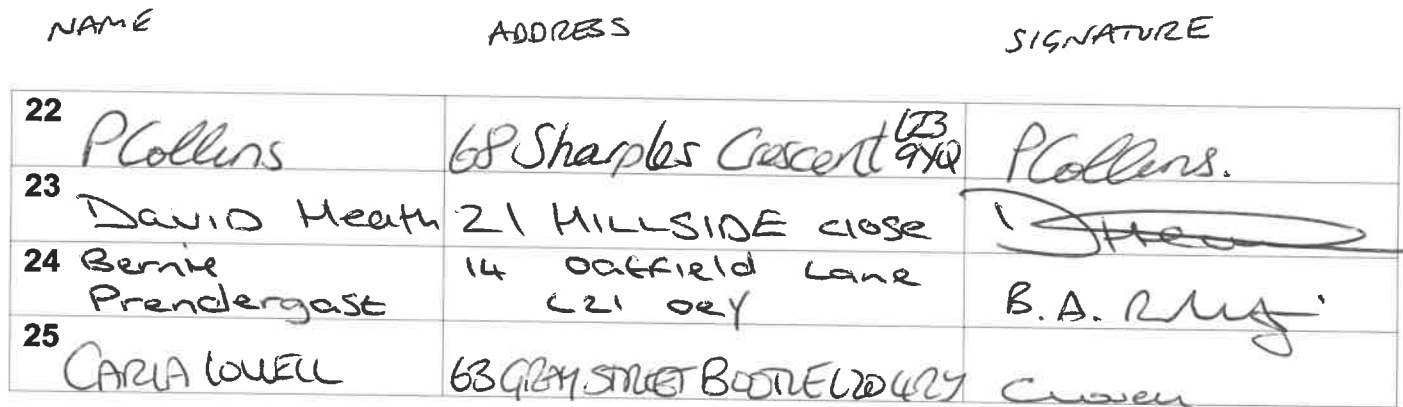 NAME ADDRESS SIGNATURE
22 P Collins 68 Sharples Crescent L23 9YQ P Collins.
23 DAVID Heath 21 HILLSIDE close
24 Bernie 14 Oatfield Lane
Prendergast L21 0EY B. A.
25 CARLA LOWELL 63 GRAY STREET BOOTLE L20 4RY